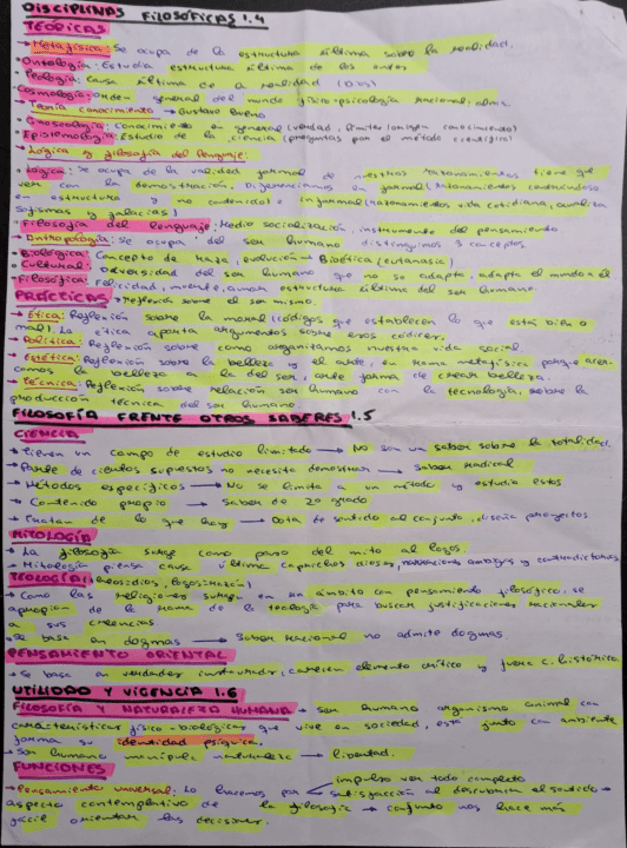 DISCIPLINAS FILOSÓFICAS 1.4
TEÓRICAS
→ Metafísica: Se ocupa de la estructura última sobre la realidad.
• Ontología: Estudia estructura última de los entes
• Teología: Causa última de a realidad (Dios)
Cosmología: Orden general del mundo físico-psicología racional: alma.
→ Teoría conocimiento → Gustavo Bueno
• Gnoseología: Conocimiento en general (verdad, límites/origen conocimiento)
Epistemología: Estudio de la ciencia (preguntas por el método científico)
→ Lógica y filosofía del lenguaje:
• Lógica: Se ocupa de la validez formal de nuestros razonamientos tiene que
ver con la demostración. Diferenciamos en formal (razonamientos centrándose
en estructura y no contenido) e informal (razonamientos vida cotidiana, analiza
sofismas y falacias)
• Filosofía del lenguaje: Medio socialización, instrumento del pensamiento
→ Antropología: Se ocupa del ser humano distinguimos 3 conceptos
• Biológica: Concepto de raza, evolución → Bioética (eutanasia)
• Cultural: Diversidad del ser humano que no se adapta, adapta el mundo a él
• Filosófica: Felicidad, muerte, amor estructura última del ser humano.
PRÁCTICAS → Reflexión sobre el ser mismo.
→ Ética: Reflexión sobre la moral (códigos que establecen lo que está bien o
mal). La ética aporta argumentos sobre esos códigos.
→ Política: Reflexión sobre como organizamos nuestra vida social.
→ Estética: Reflexión sobre la belleza y el arte, en rama metafísica porque acer-
camos la belleza a la del ser, arte forma de crear belleza.
→ Técnica: Reflexión sobre relación ser humano con la tecnología, sobre la
producción técnica del ser humano.
FILOSOFÍA FRENTE OTROS SABERES 1.5
CIENCIA
→ Tienen un campo de estudio limitado → No son un saber sobre la totalidad.
→ Parte de ciertos supuestos no necesita demostrar → Saber radical
→ Métodos específicos → No se limita a un método y estudia estos
→ Contenido propio → Saber de 2º grado
→ Tratan de lo que hay → Dota de sentido al conjunto, diseña proyectos
MITOLOGÍA
→ La filosofía surge como paso del mito al logos.
→ Mitología piensa causa última caprichos dioses, narraciones ambiguas y contradictorias
TEOLOGÍA (theos: dios, logos: razón)
→ Como las religiones surgen en un ámbito con pensamiento filosófico, se
apropian de la rama de la teología para buscar justificaciones racionales
a sus creencias
→ Se basa en dogmas → Saber racional no admite dogmas.
PENSAMIENTO ORIENTAL
→ Se basa en verdades instauradas, carecen elemento crítico y fuera c. histórico
UTILIDAD Y VIGENCIA 1.6
FILOSOFÍA Y NATURALEZA HUMANA → Ser humano organismo animal con
características físico-biológicas que vive en sociedad, esta junto con ambiente
forma su identidad psíquica.
→ Ser humano manipula naturaleza → libertad.
FUNCIONES
impulso ver todo completo
→ Pensamiento universal: Lo hacemos por satisfacción al descubrir el sentido →
aspecto contemplativo de la filosofía → conjunto nos hace más
fácil orientar las decisiones.